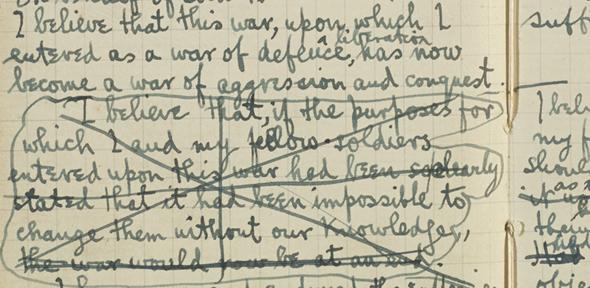 I believe that this war, upon which I
& liberation
entered as a war of defence, has now
become a war of aggression and conquest.
I believe that, if the purposes for
which I and my fellow-soldiers
entered upon this war had been so clearly
stated that it had been impossible to
change them without our knowledge,
the war would now be at an end.
suff
I beli
my f
shoul
as